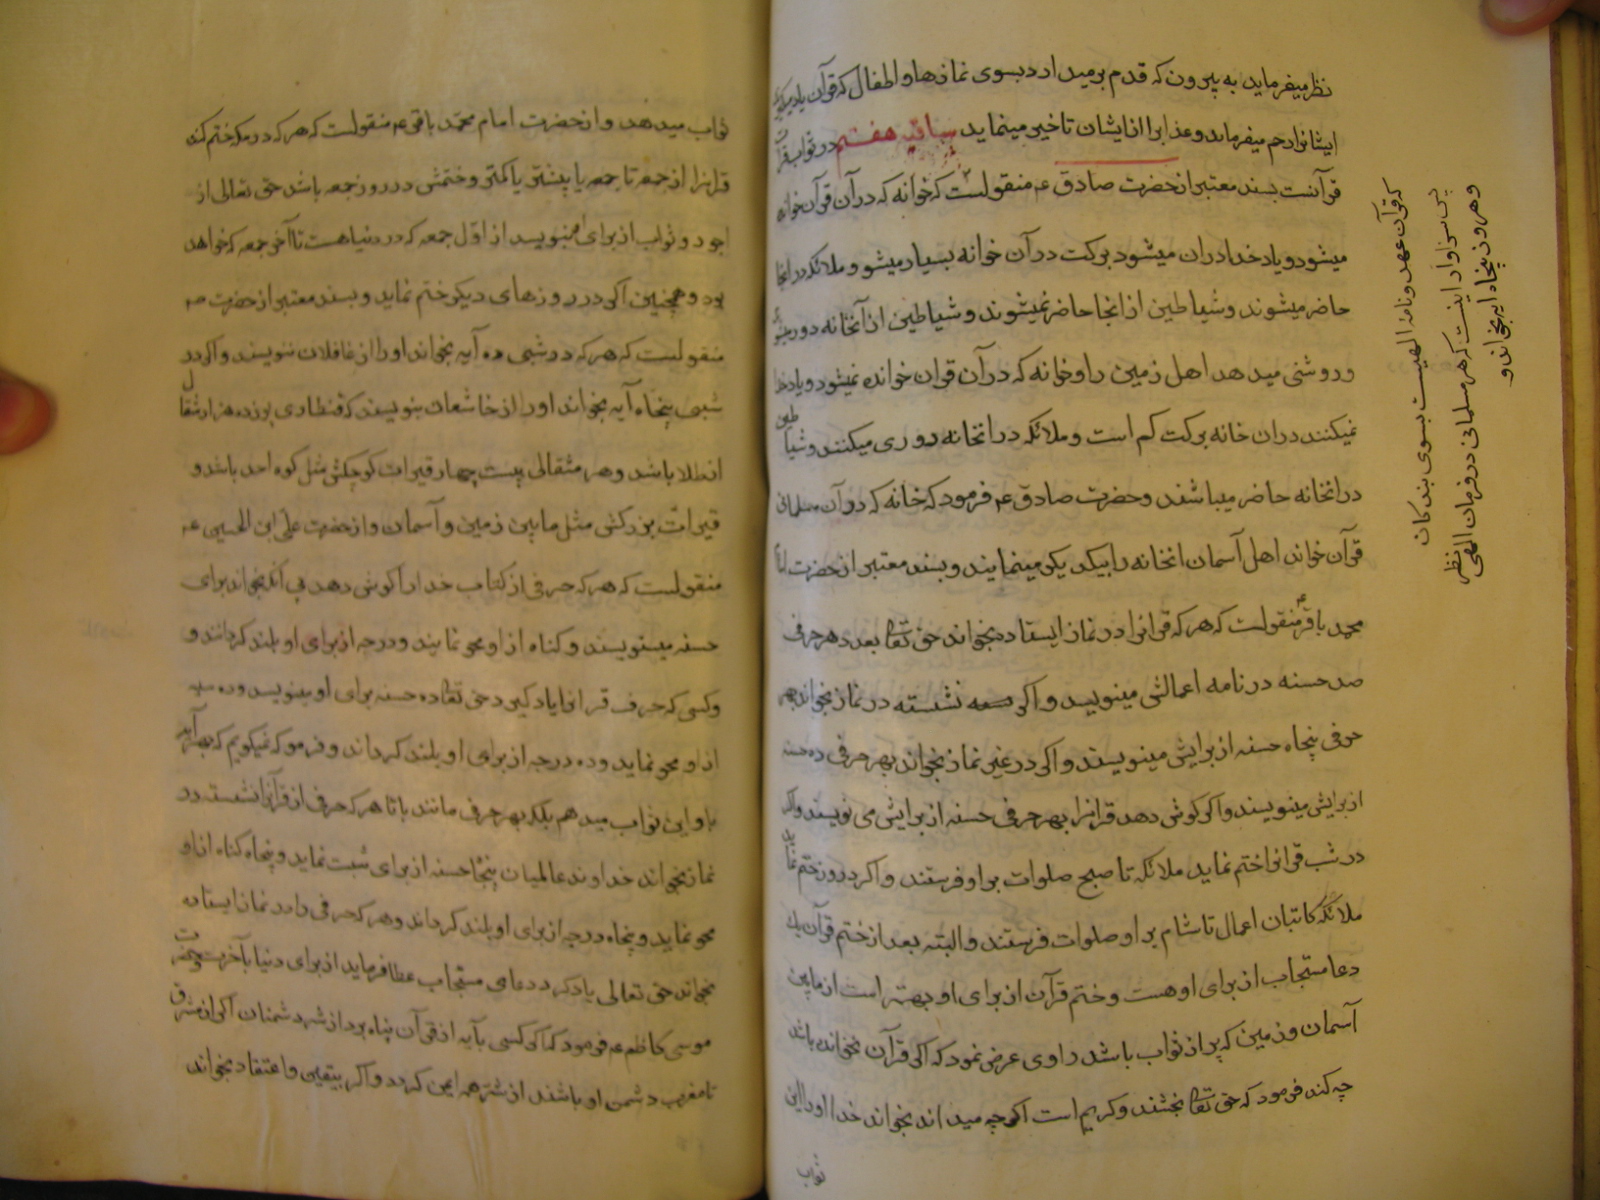 نظر میفرماید به پیرون که قدم برمیدارد بسوی نمازها و اطفال که قرآن یاد میکیرند
ایشانرا رحم میفرماید و عذابرا از ایشان تاخیر مینماید ساقیه هفتم در ثواب قرائت
قرآنست بسند معتبر از حضرت صادق ع منقولست که خوانه که در آن قرآن خوانده
میشود و یاد خدا دران میشود برکت در آن خوانه بسیار میشو و ملائکه در انجا
حاضر میشوند و شیاطین از انجا حاضر نمیشوند و شیاطین از آنخانه دور میشود
و روشنی میدهد اهل زمین را و خانه که در آن قران خوانده نمیشود و یاد خدا
نمیکنند دران خانه برکت کم است و ملائکه در انخانه دوری میکنند و شیاطین
در انخانه حاضر میباشند و حضرت صادق ع فرمود که خانه که در آن مسلمانی
قرآن خواند اهل آسمان انخانه را بیکدیکر مینمایند و بسند معتبر از حضرت امام
محمد باقر ع منقولست که هر که قرانرا در نماز ایستاده بخواند حق تعالی بعدد هر حرفی
صد حسنه در نامه اعمالش مینویسد و اکر نشسته در نماز بخواند بهر
حرفی پنجاه حسنه از برایش مینویسند و اکر در غیر نماز بخواند بهر حرفی ده حسنه
از برایش مینویسند و اکر کوش دهد قرانرا بهر حرفی حسنه از برایش می نویسند و اکر
در شب قرانرا ختم نماید ملائکه تا صبح صلوات براو فرستند و اکر در روز ختم نماید
ملائکه کاتبان اعمال تا شام بر او صلوات فرستند و البته بعد از ختم قرآن یک
دعا مستجاب از برای او هست و ختم قرآن از برای او بهتر است از مابین
آسمان و زمین که پر از ثواب باشد راوی عرض نمود که اکر قرآن نخوانده باشد
چه کند فرمود که حق تعالی بخشند و کریم است اکر چه میداند بخواند خدا اورا این
ثواب
که قرآن عهد و نامۀ الهیست بسوی بندکان
پس سزاوار اینست که هر مسلمانی در فرمان الهی نظر
و هر روز پنجاه ایه بخواند و
ثواب میدهد و از حضرت امام محمد باقر ع منقولست که هر که در مکه ختم کند
قرانرا از جمعه تا جمعه یا پیشتر یا کمتر و ختمش در روز جمعه باشد حق تعالی از
اجر و ثواب از برای او بنویسد از اول جمعه که در دنیا هست تا آخر جمعه که خواهد
بود و همچنین اکر در روزهای دیکر ختم نماید و بسند معتبر از حضرت ص
منقولست که هر که در شبی ده آیه بخواند اورا از غافلان ننویسند و اکر در
شبی پنجاه آیه بخواند اورا از خاشعان بنویسند که قنطاری پانزده هزار مثقال
از طلا باشد و هر مثقالی بیست چهار قیرات کوچکش مثل کوه احد باشد و
قیرات بزرکش مثل مابین زمین و آسمان و از حضرت علی ابن الحسین ع
منقولست که هر که حرفی از کتاب خدا را کوش دهد بی آنکه بخواند برای
حسنه مینویسند و کناه از او محو نمایند و درجه از برای او بلند کردانند و
و کسی که حرف قرانرا یاد کیرد حق تعالی ده حسنه برای او بنویسد و ده سیه
از او محو نماید و ده درجه از برای او بلند کرداند و فرمو که نمیکویم که بهر آیه
باو این ثواب میدهم بلکه بهر حرفی مانند با تا هر که حرفی از قرآنرا نشسته در
نماز بخواند خداوند عالمیان پنجا حسنه از برای ثبت نماید و پنجاه کناه از او
محو نماید و پنجاه درجه از برای او بلند کرداند و هر که حرفی را در نماز ایستاده
بخواند حق تعالی یاد کرد دعای مستجاب عطا فرماید از برای دنیا یا آخرت و حضرت
موسی کاظم ع فرمود که اکر کسی بآیه از قرآن پناه برد از شر دشمنان اکر از مشرق
تا مغرب دشمن او باشند از شر همه ایمن کردد و اکر بیقین و اعتقاد بخواند